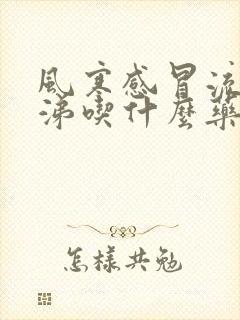 風寒感冒流
涕喫什麼藥
怎樣共勉